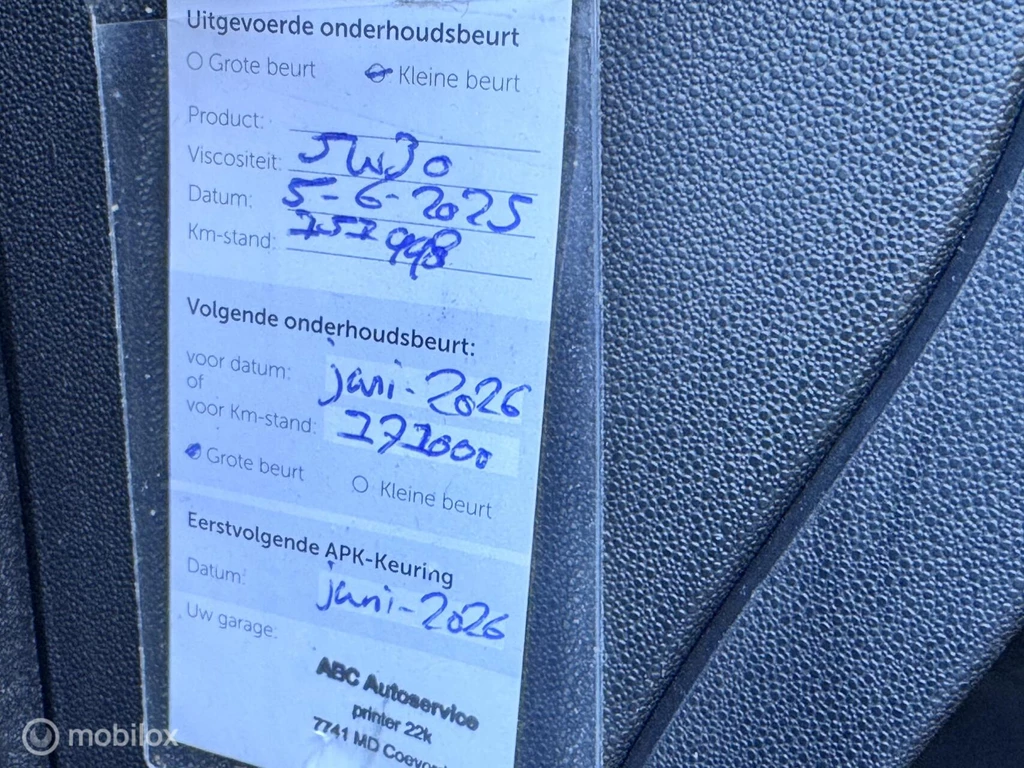 Uitgevoerde onderhoudsbeurt
Grote beurt Kleine beurt
Product:
Viscositeit: 5W30
Datum: 5-6-2025
Km-stand: 151998
Volgende onderhoudsbeurt:
voor datum: juni-2026
of
voor Km-stand: 171000
Grote beurt Kleine beurt
Eerstvolgende APK-Keuring
Datum: juni-2026
Uw garage:
ABC Autoservice
printer 22k
7741 MD Coevor
mobilox